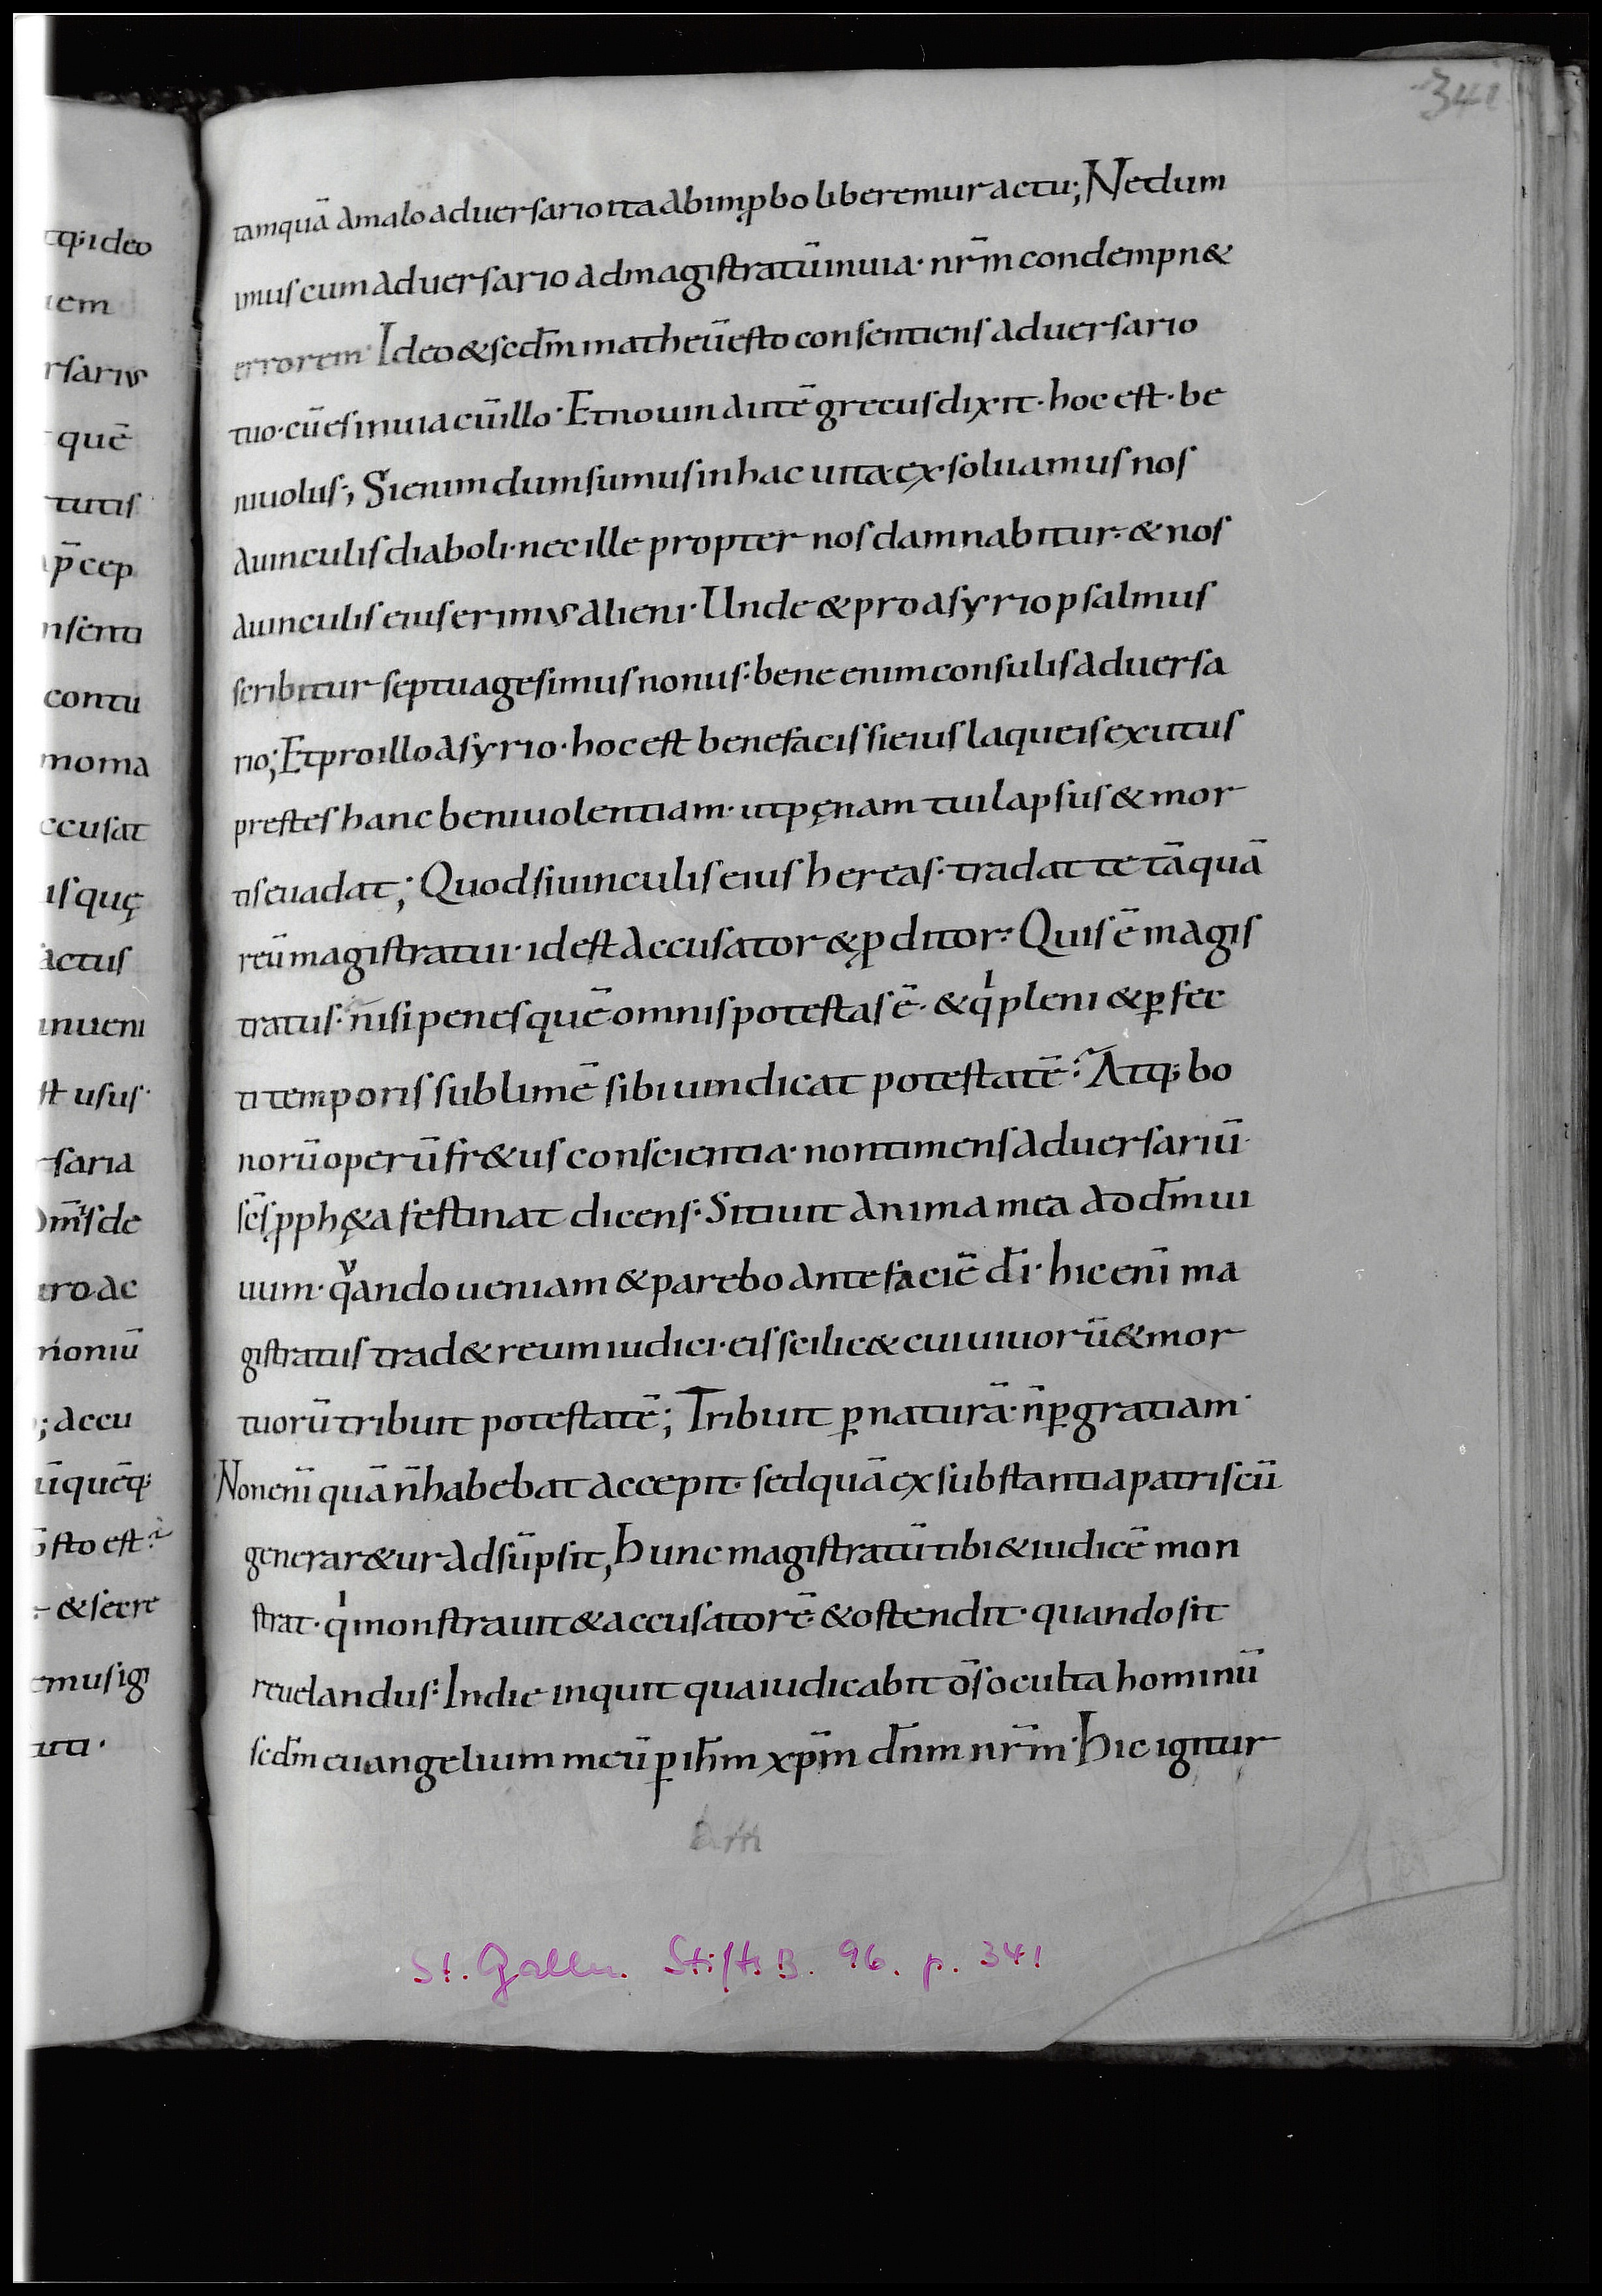 341
tamquā amalo aduersario ita abimꝓbo liberemur actu; Nedum
imus cum aduersario admagistratū inuia· nr̄m condempn&
errorem· Ideo & scdm̄ matheū esto consentiens aduersario
tuo· cū es inuia cū illo· Et nouin autē grecus dixit· hoc est· be
niuolus; Si enim dum sumus in hac uita exsoluamus nos
auinculis diaboli· nec ille propter nos damnabitur· & nos
auinculis eius erimus alieni· Unde & pro asyrio psalmus
scribitur septuagesimus nonus· bene enim consulis aduersa
rio; Et pro illo asyrio· hoc est bene facis si eius laqueis exutus
prestes hanc beniuolentiam· ut pęnam tui lapsus & mor
tis euadat; Quod si uinculis eius hereas· tradat te tāquā
reū magistratui· id est accusator & ꝓditor· Quis ē magis
tratus· nisi penes quē omnis potestas ē· & qi pleni & ꝑfec
ti temporis sublimē sibi uindicat potestatē· Atq; bo
norū operū fr&us conscientia· non timens aduersariū·
scs̄ ꝓph&a festinat dicens· Sitiuit anima mea ad dm̄ ui
uum· quando ueniam & parebo ante faciē dī· hic enī ma
gistratus trad& reum iudici· eis scilic& cui uiuorū & mor
tuorū tribuit potestatē; Tribuit ꝑ naturā· n̄ ꝑ gratiam·
Non enī quā n̄ habebat accepit· sed quā ex substantia patris cū
generar&ur adsūpsit, Hunc magistratū tibi & iudicē mon
strat· qi monstrauit & accusatorē· & ostendit· quando sit
reuelandus· In die inquit qua iudicabit ōs oculta hominū
scdm̄ euangelium meū ꝑ ihm̄ xpm̄ dnm̄ nrm̄· Hic igitur
St. Gallen. Stifts B. 96. p. 341